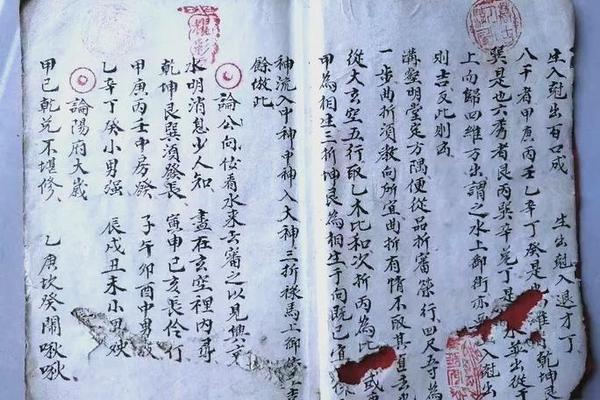 生入尅出百口成 生出尅入退才丁
八干者甲庚丙壬乙辛丁癸是也 四維 乾坤艮
巽是也六秀者艮丙巽辛兌丁是 水並出從干
上向歸四維方出謂之水上御街亦 入尅出
則吉反此則凶
溝壑明堂定方隅便從品折審䇿行四尺五寸為
一步曲折須教向所宜曲折有情不取其直去也
從大玄空五行取乙木比和次折丙為比 或
甲為相生三折坤艮為相生于向既已
神流入中神中神入大神三折祿馬上御
餘倣此
論公向仮看水來去審之以見興
水明消息少人知 盡在玄空裡內尋
乾坤艮巽須發長 寅申巳亥長伶仃
甲庚丙壬中房發 子午卯酉中男
乙辛丁癸小男强 辰戌丑未小男殃
論陽府大歲
甲己乾兌不堪修 乙庚坎癸鬧啾啾